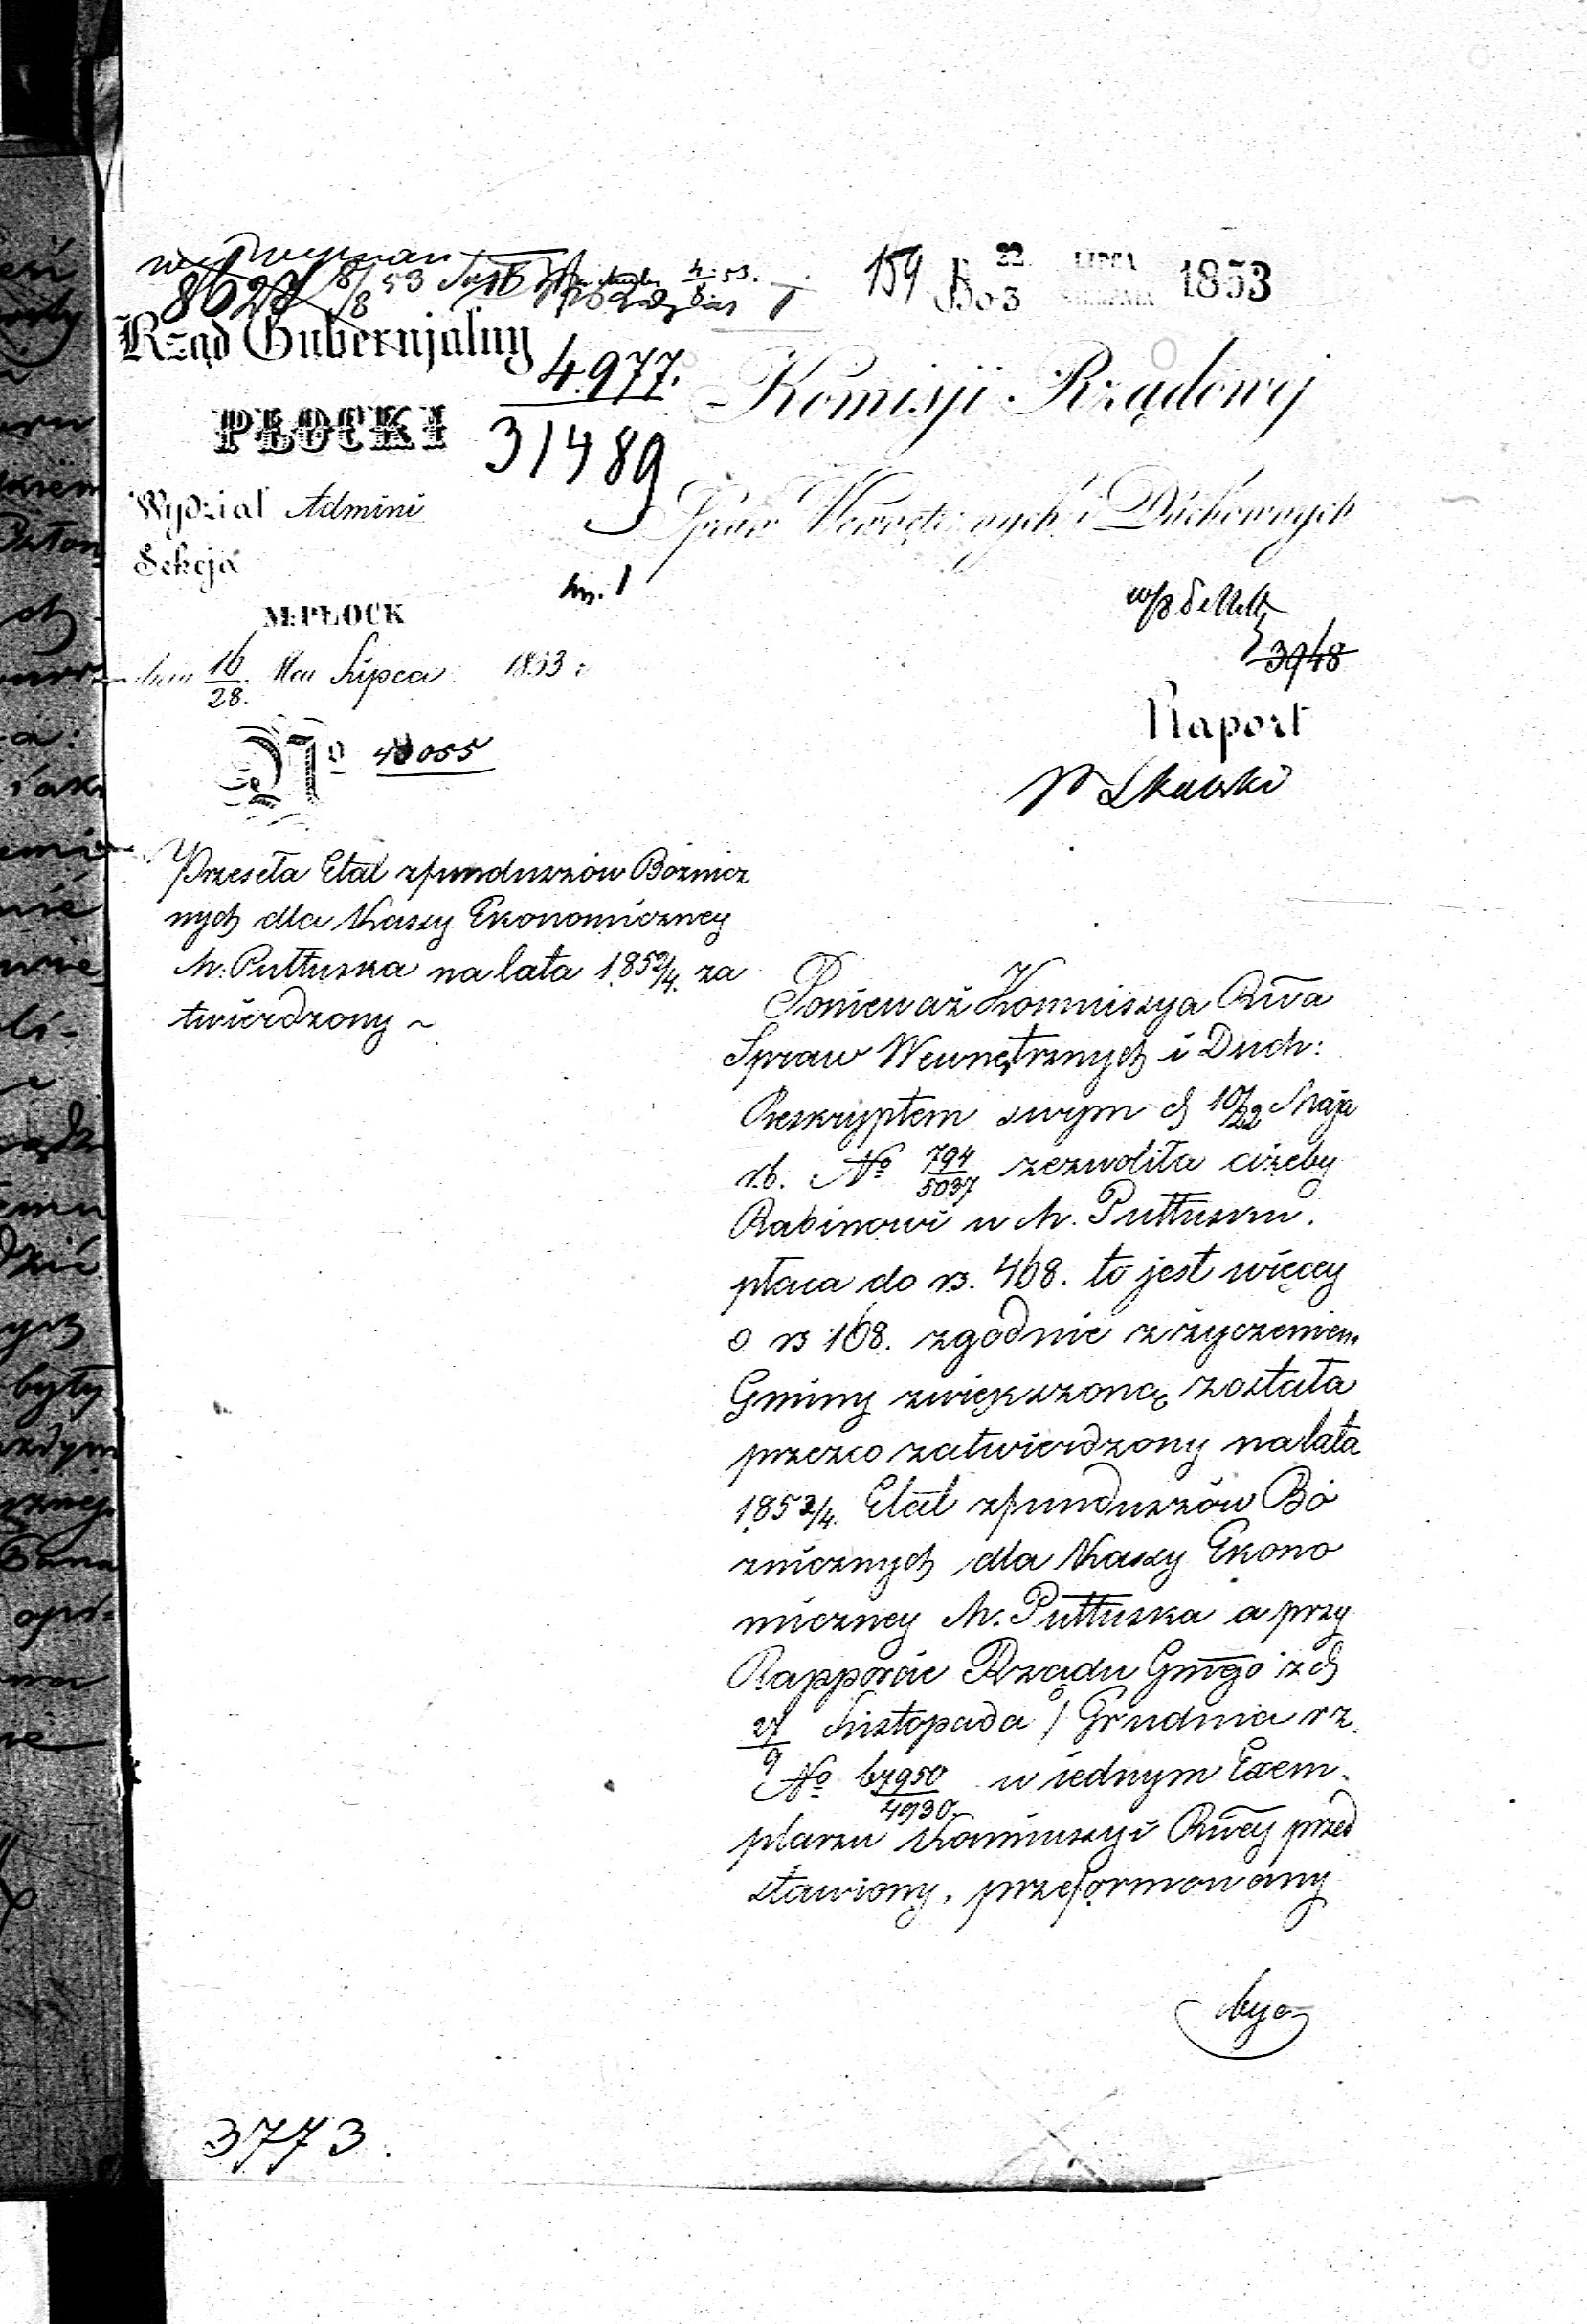 8627 8/8 53
159 22 LIPCA 1853
Bo3
Rząd Gubernjalny
4977.
31489
PŁOCKI
Komisji Rządowej
Wydział Admini
Spraw Wewnętrznych i Duchownych
Sekcja
M: PŁOCK
dnia 16/28. Mca Lipca 1853 r
3948
Raport
No 43055
Przeseła Etat z funduszów Bożnicz
nych dla Kassy Ekonomiczney
M: Pułtuska na lata 1852/4. za
twierdzony ~
Ponieważ Kommissya Rwa
Spraw Wewnętrznych i Duch:
Reskryptem swym d 10/22 Maja
r.b. No 794/5037 zezwoliła ażeby
Rabinowi w M. Pułtusku.
płaca do rs. 468. to jest więcey
o rs 168. zgodnie z życzeniem
Gminy zwiększoną została
przezco zatwierdzony na lata
1852/4. Etat z funduszów Bo
żnicznych dla Kassy Ekono
miczney M. Pułtuska a przy
Rapporcie Rządu Gmgo z d
27/9 Listopada / Grudnia r z.
No 67950/4930 w iednym Exem
plarzu Kommissyi Rwey przed
stawiony, przeformowany
3773.